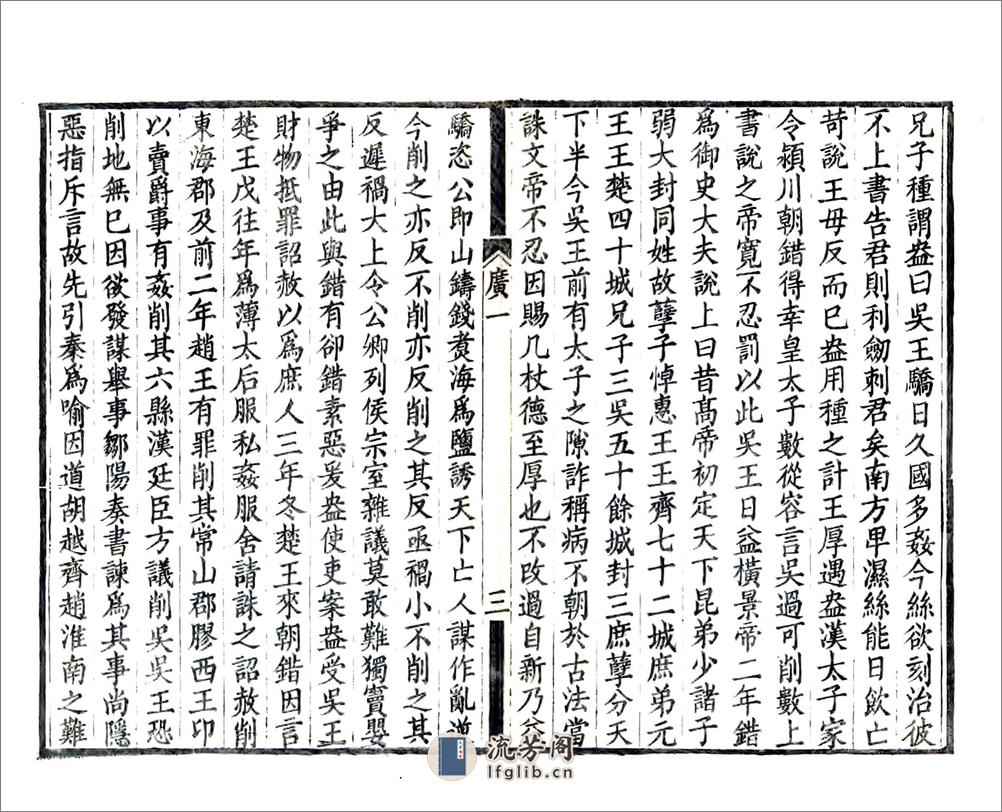 兄子種謂盎曰吳王驕日久國多姦今絲欲刻治彼
不上書告君則利劒刺君矣南方卑濕絲能日飲亡
苛說王毋反而已盎用種之計王厚遇盎漢太子家
令潁川朝錯得幸皇太子數從容言吳過可削數上
書說之帝寬不忍罰以此吳王日益橫景帝二年錯
爲御史大夫說上曰昔髙帝初定天下昆弟少諸子
弱大封同姓故孽子悼惠王王齊七十二城庶弟元
王王楚四十城兄子三吳五十餘城封三庶孽分天
下半今吳王前有太子之隙詐稱病不朝於古法當
誅文帝不忍因賜几杖德至厚也不改過自新乃益
廣一
三
驕恣公即山鑄錢煑海爲鹽誘天下亡人謀作亂逆
今削之亦反不削亦反削之其反亟禍小不削之其
反遲禍大上令公卿列侯宗室雜議莫敢難獨竇嬰
爭之由此與錯有卻錯素惡爰盎使吏案盎受吳王
財物抵罪詔赦以爲庶人三年冬楚王來朝錯因言
楚王戊往年爲薄太后服私姦服舍請誅之詔赦削
東海郡及前二年趙王有罪削其常山郡膠西王卬
以賣爵事有姦削其六縣漢廷臣方議削吳吳王恐
削地無已因欲發謀舉事鄒陽奏書諫爲其事尚隱
惡指斥言故先引秦爲喻因道胡越齊趙淮南之難
流芳阁
lfglib.cn